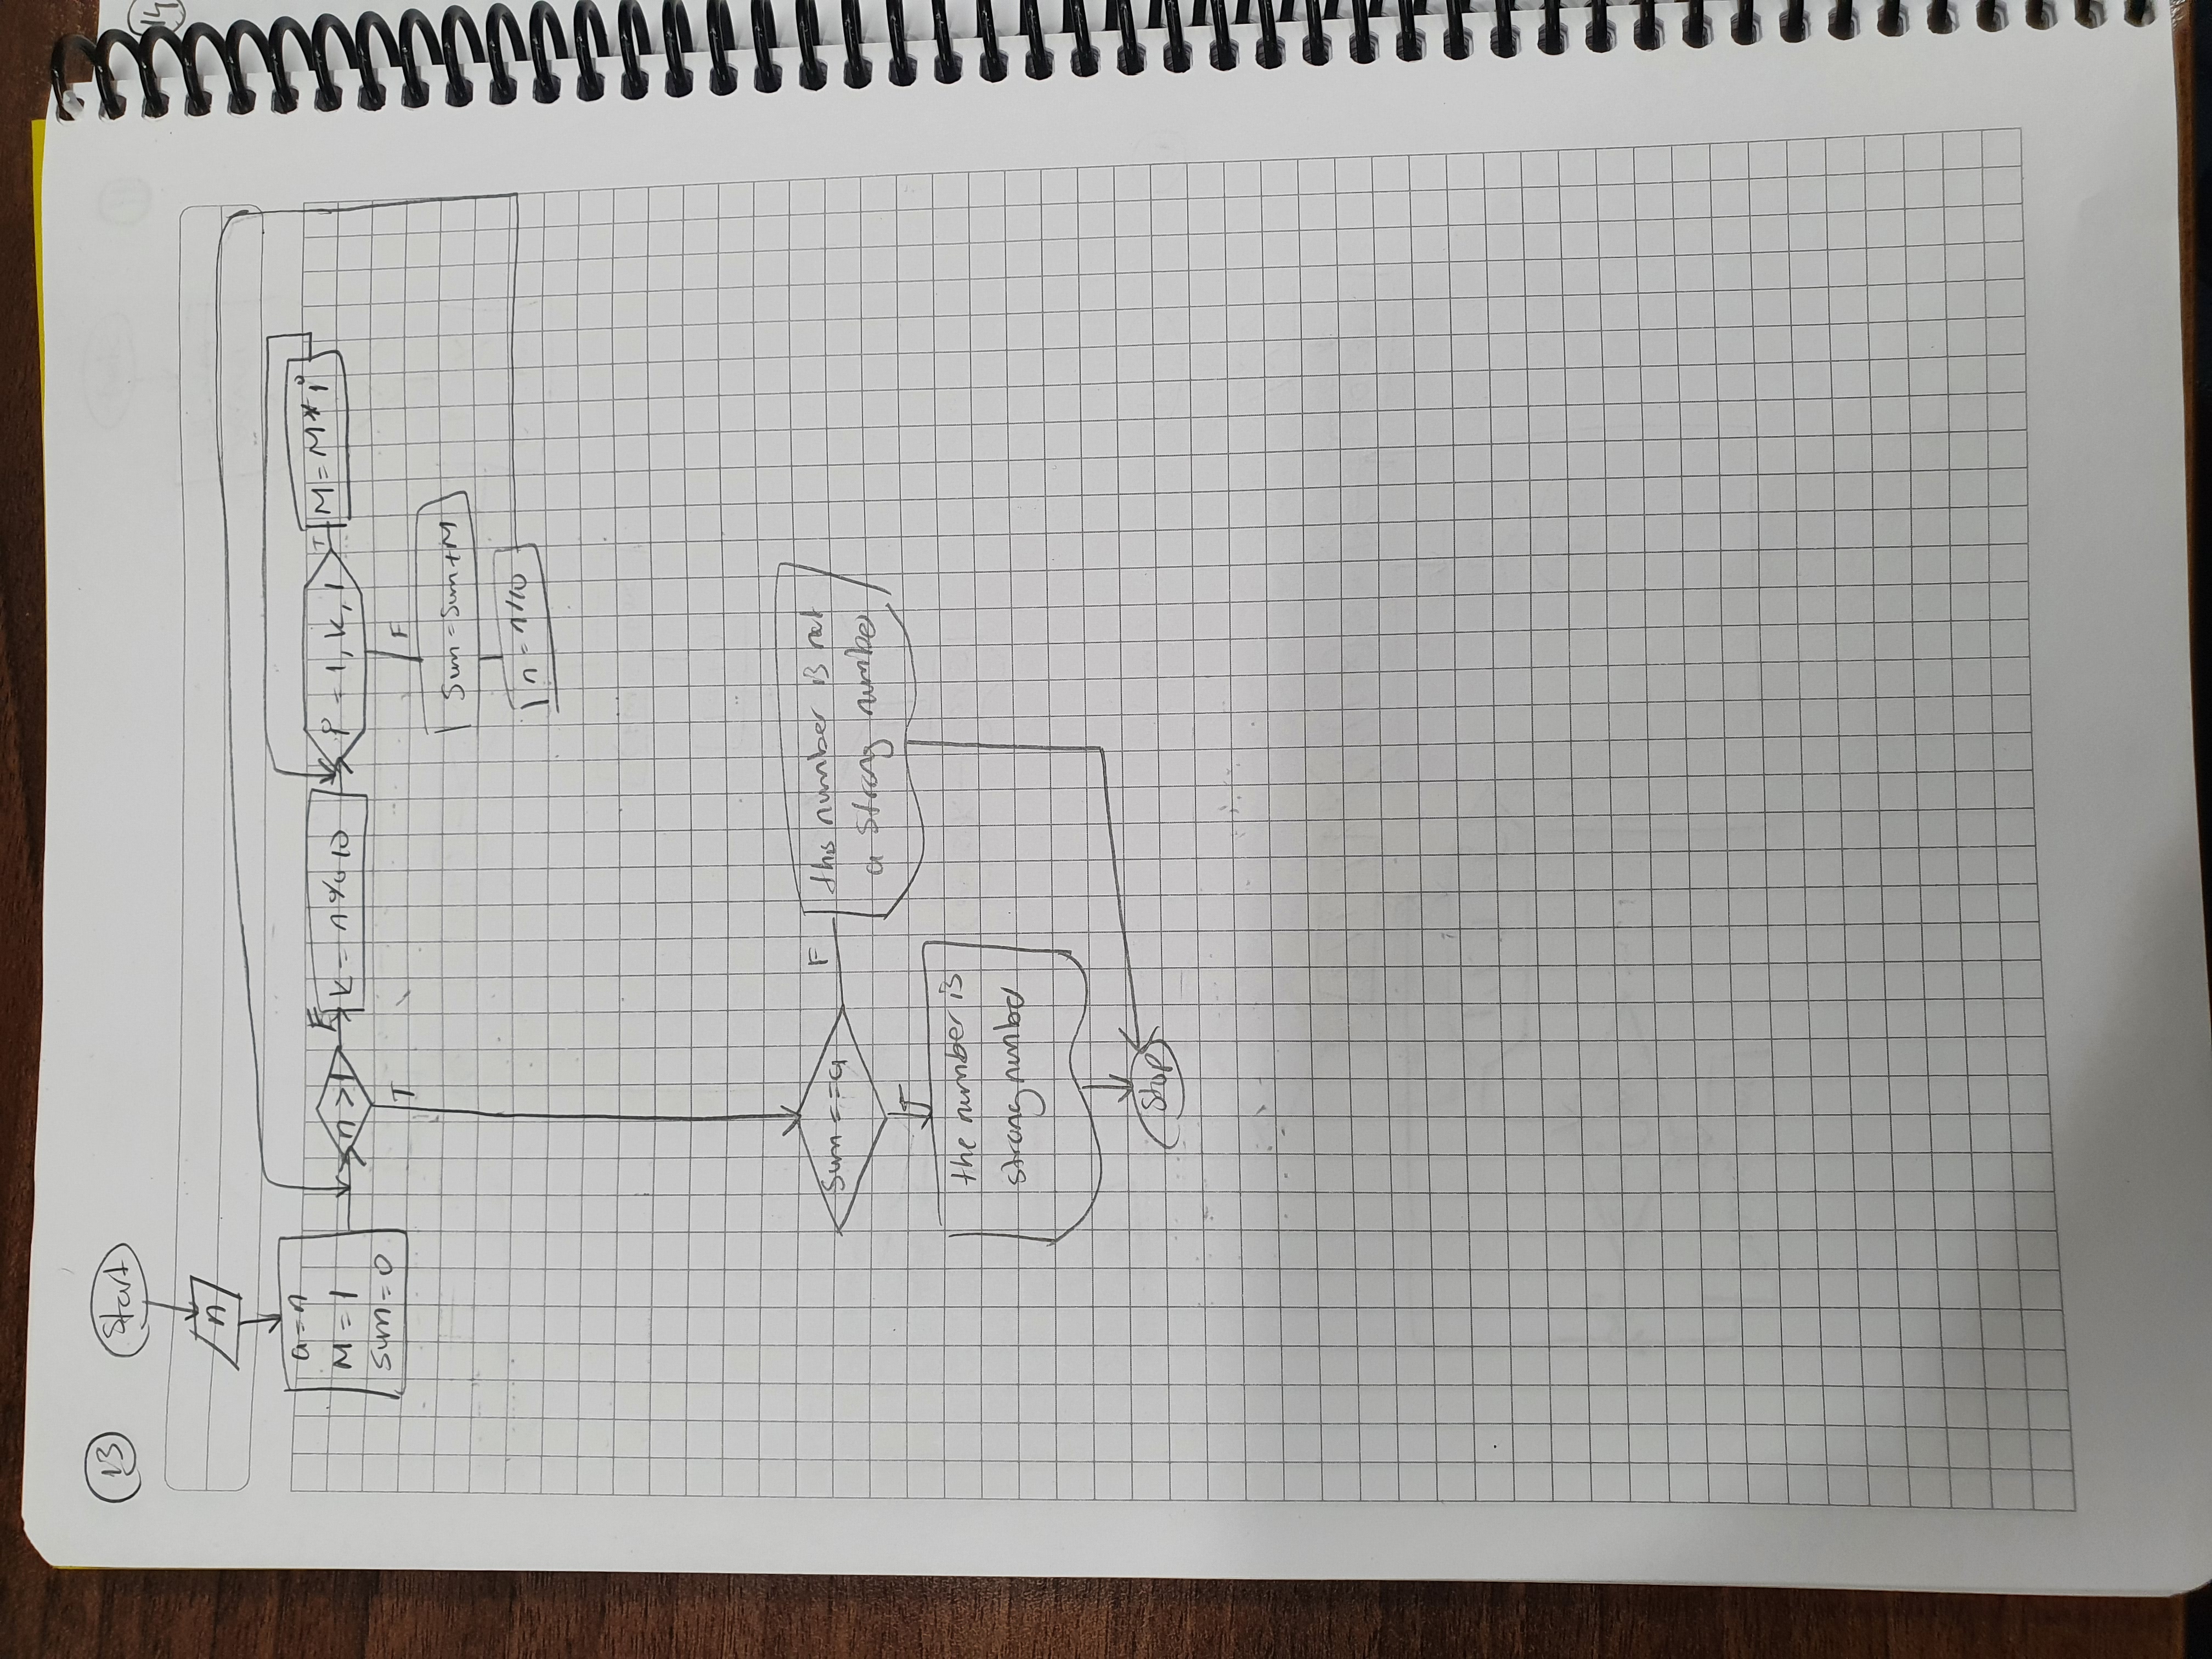 13
Start
n
a = n
M = 1
sum = 0
n > 1
F
T
k = n % 10
i = 1, k, 1
T
F
M = M * i
Sum = Sum + M
n = n/10
Sum == a
F
T
this number is not
a strong number
the number is
strong number
Stop
14